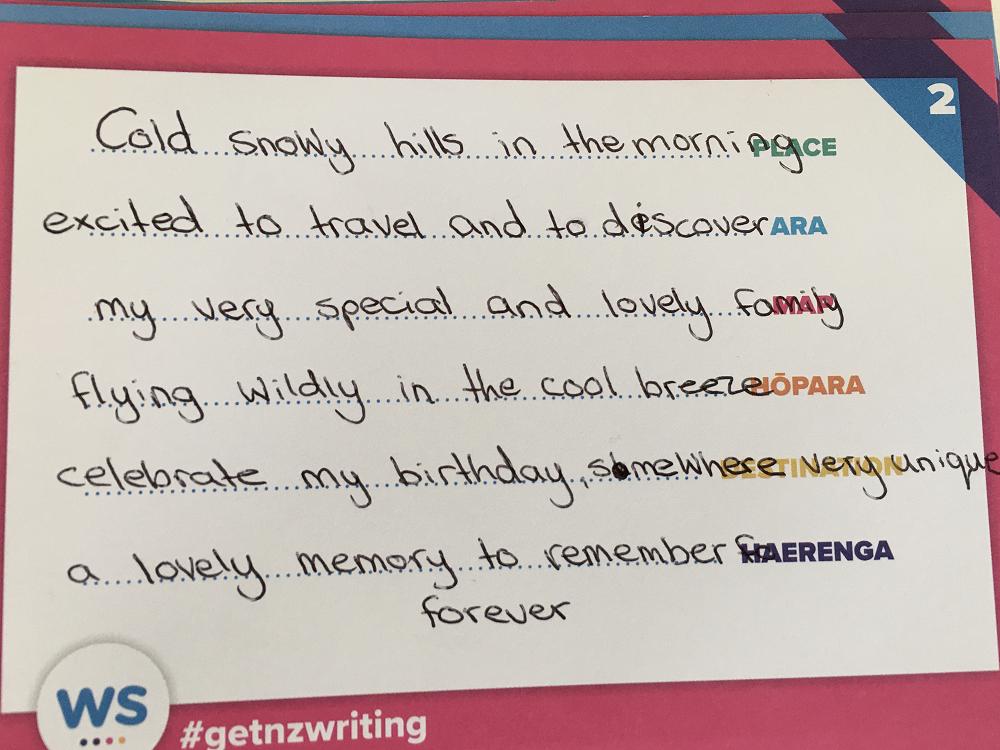 2
Cold snowly hills in the morning PLACE
excited to travel and to discover ARA
my very special and lovely family MAP
flying wildly in the cool breeze HŌPARA
celebrate my birthday, somewhere very unique DESTINATION
a lovely memory to remember fo HAERENGA
forever
WS
#getnzwriting